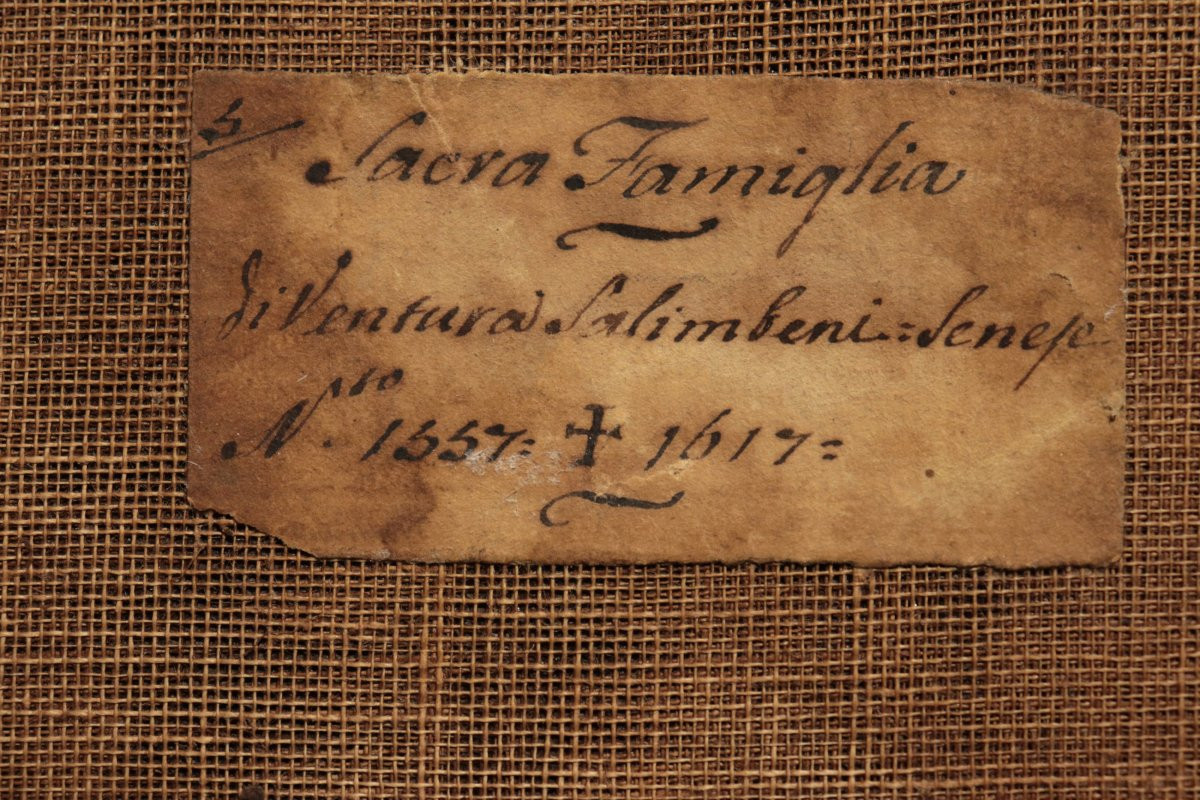 5/
Sacra Famiglia
di Ventura Salimbeni = Senese
N.to 1557 = ✝ 1617 =